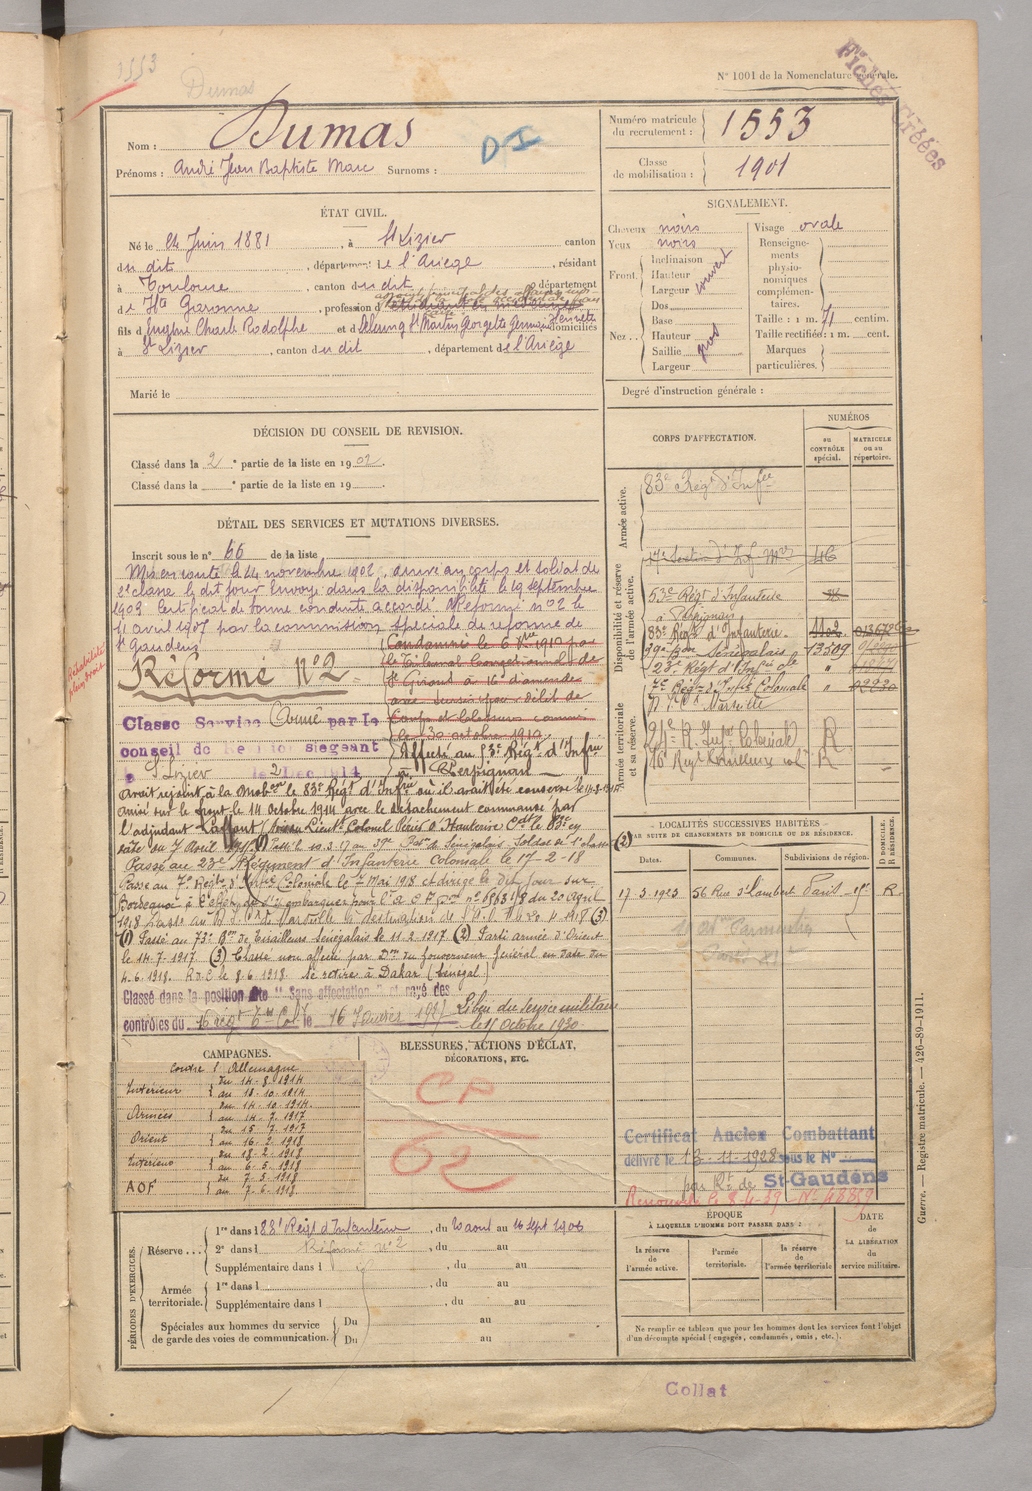 1553
Dumas
N° 1001 de la Nomenclature générale.
Fiches Créées
Nom : Dumas
D I
Prénoms : André Jean Baptiste Marc Surnoms :
Numéro matricule du recrutement : 1553
Classe de mobilisation : 1901
ÉTAT CIVIL.
Né le 24 Juin 1881, à St Lizier canton
du dit, département de l'Ariège, résidant
à Toulouse, canton du dit, département
de Hte Garonne, profession d'étudiant en médecine
fils d'Eugène Charles Rodolphe et de St Martin Georgette Germaine Henriette domiciliés
à St Lizier, canton du dit, département de l'Ariège
Marié le
SIGNALEMENT.
Cheveux noirs
Yeux noirs
Front. Inclinaison
Hauteur
Largeur
couvert
Nez.. Dos
Base
Hauteur
Saillie
Largeur
gros
Visage ovale
Renseignements physionomiques complémentaires.
Taille : 1 m. 71 centim.
Taille rectifiée : 1 m. cent.
Marques particulières.
Degré d'instruction générale :
DÉCISION DU CONSEIL DE REVISION.
Classé dans la 2e partie de la liste en 1902.
Classé dans la e partie de la liste en 19
DÉTAIL DES SERVICES ET MUTATIONS DIVERSES.
Inscrit sous le n° 66 de la liste
Mis en route le 14 novembre 1902, arrivé au corps et soldat de
2e classe le dit jour. Envoyé dans la disponibilité le 19 septembre
1903. Certificat de bonne conduite accordé. Réformé n° 2 le
11 avril 1907 par la commission spéciale de réforme de
St Gaudens
Réformé N° 2
Réhabilité plein droit
Condamné le 6 Xbre 1910 par
le Tribunal Correctionnel de
St Girons à 16f d'amende
avec sursis pour délit de
chasse commis
le 30 octobre 1910
Classé Service Armé par le
conseil de Révision siégeant
à St Lizier le 2 Dec 1914
Affecté au 53e Régt d'Infrie
à Perpignan
Avait rejoint à la Mobon le 83e Régt d'Infrie où il avait été conservé le 14-8-1914
Ainsi sur le front le 14 octobre 1914 avec le détachement commandé par
l'adjudant Laffont
Passé au 23e Régiment d'Infanterie coloniale le 17-2-18
Passé au 7e Régt d'Infrie Coloniale le 7 Mai 1918 et dirigé le dit jour sur
Bordeaux
(1) Passé au 73e Bon de Tirailleurs Sénégalais le 11-2-1917 (2) Parti armée d'Orient
le 14-7-1917 (3) Classé non affecté par Don du Gouverneur Général en date du
4-6-1918. R.D.C le 8-6-1918. Se retire à Dakar (Sénégal)
Classé dans la position dite "Sans affectation" et rayé des
contrôles du 16 régt Tirs Col le 16 Janvier 1927
Libéré du service militaire
le 15 Octobre 1930
CORPS D'AFFECTATION.
NUMÉROS
au CONTRÔLE spécial.
MATRICULE ou au répertoire.
Armée active.
83e Régt d'Infie
Disponibilité et réserve de l'armée active.
17e Section d'Inf Mres 46
53e Régt d'Infanterie
à Perpignan
83e Régt d'Infanterie 1102
Sénégalais 13509
23e Régt d'Infie Cle "
7e Régt d'Infie Coloniale "
Armée territoriale et sa réserve.
Marseille
21e R. Infie Coloniale R
16e Régt Tirailleurs col R
LOCALITÉS SUCCESSIVES HABITÉES
PAR SUITE DE CHANGEMENTS DE DOMICILE OU DE RÉSIDENCE.
Dates. Communes. Subdivisions de région. D DOMICILE. R RÉSIDENCE.
17-3-1923 56 Rue St Lambert Paris R.
Parmentier
Paris XIe
CAMPAGNES.
contre l'Allemagne
Intérieur du 14-8-1914
au 13-10-1914
Armées du 14-10-1914
au 14-7-1917
Orient du 15-7-1917
au 16-2-1918
Intérieur du 18-2-1918
au 6-5-1918
AOF du 7-5-1918
au 7-6-1918
BLESSURES, ACTIONS D'ÉCLAT,
DÉCORATIONS, ETC.
CP
62
Certificat Ancien Combattant
délivré le 13-11-1928 sous le N°
par Rt de St-Gaudens
Renouvelé le 8-4-39 - N° 48859
PÉRIODES D'EXERCICES.
Réserve... 1re dans l 83e Régt d'Infanterie, du 20 août au 16 sept 1906
2e dans l Réformé n° 2, du au
Supplémentaire dans l, du au
Armée territoriale. 1re dans l, du au
Supplémentaire dans l, du au
Spéciales aux hommes du service de garde des voies de communication. Du au
Du au
ÉPOQUE
À LAQUELLE L'HOMME DOIT PASSER DANS
la réserve de l'armée active.
l'armée territoriale.
la réserve de l'armée territoriale
DATE de LA LIBÉRATION du service militaire.
Ne remplir ce tableau que pour les hommes dont les services font l'objet
d'un décompte spécial (engagés, condamnés, omis, etc.)
Guerre. — Registre matricule. — 426-89-1911.
Collat